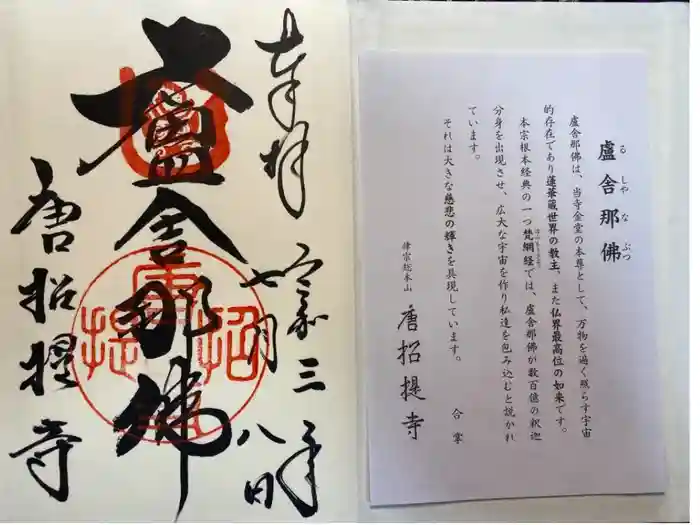 奉拝
令和三年
七月八日
盧舎那佛
唐招提寺
唐招提
盧舎那佛
るしゃなぶつ
盧舎那佛は、当寺金堂の本尊として、万物を遍く照らす宇宙
的存在であり蓮華蔵世界の教主、また仏界最高位の如来です。
本宗根本経典の一つ梵網経では、盧舎那佛が数百億の釈迦
分身を出現させ、広大な宇宙を作り私達を包み込むと説かれ
ています。
それは大きな慈悲の輝きを具現しています。
合掌
律宗総本山
唐招提寺